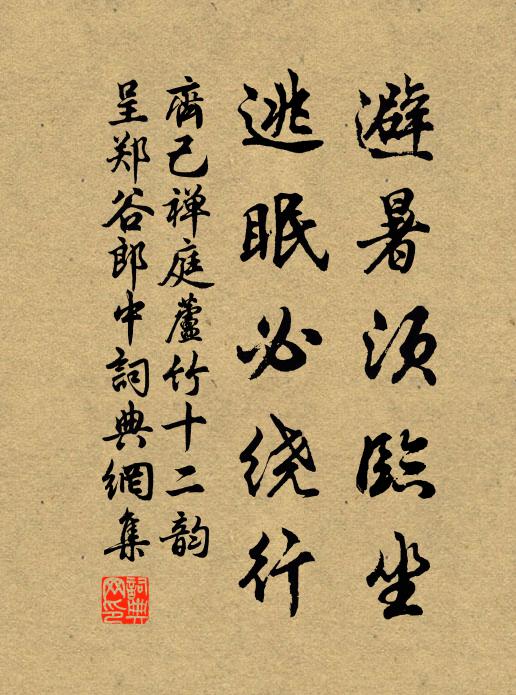 避暑须臨坐
逃眠必绕行
齊己禅庭蘆竹十二韵
呈郑谷郎中詞典網集
詞典网印